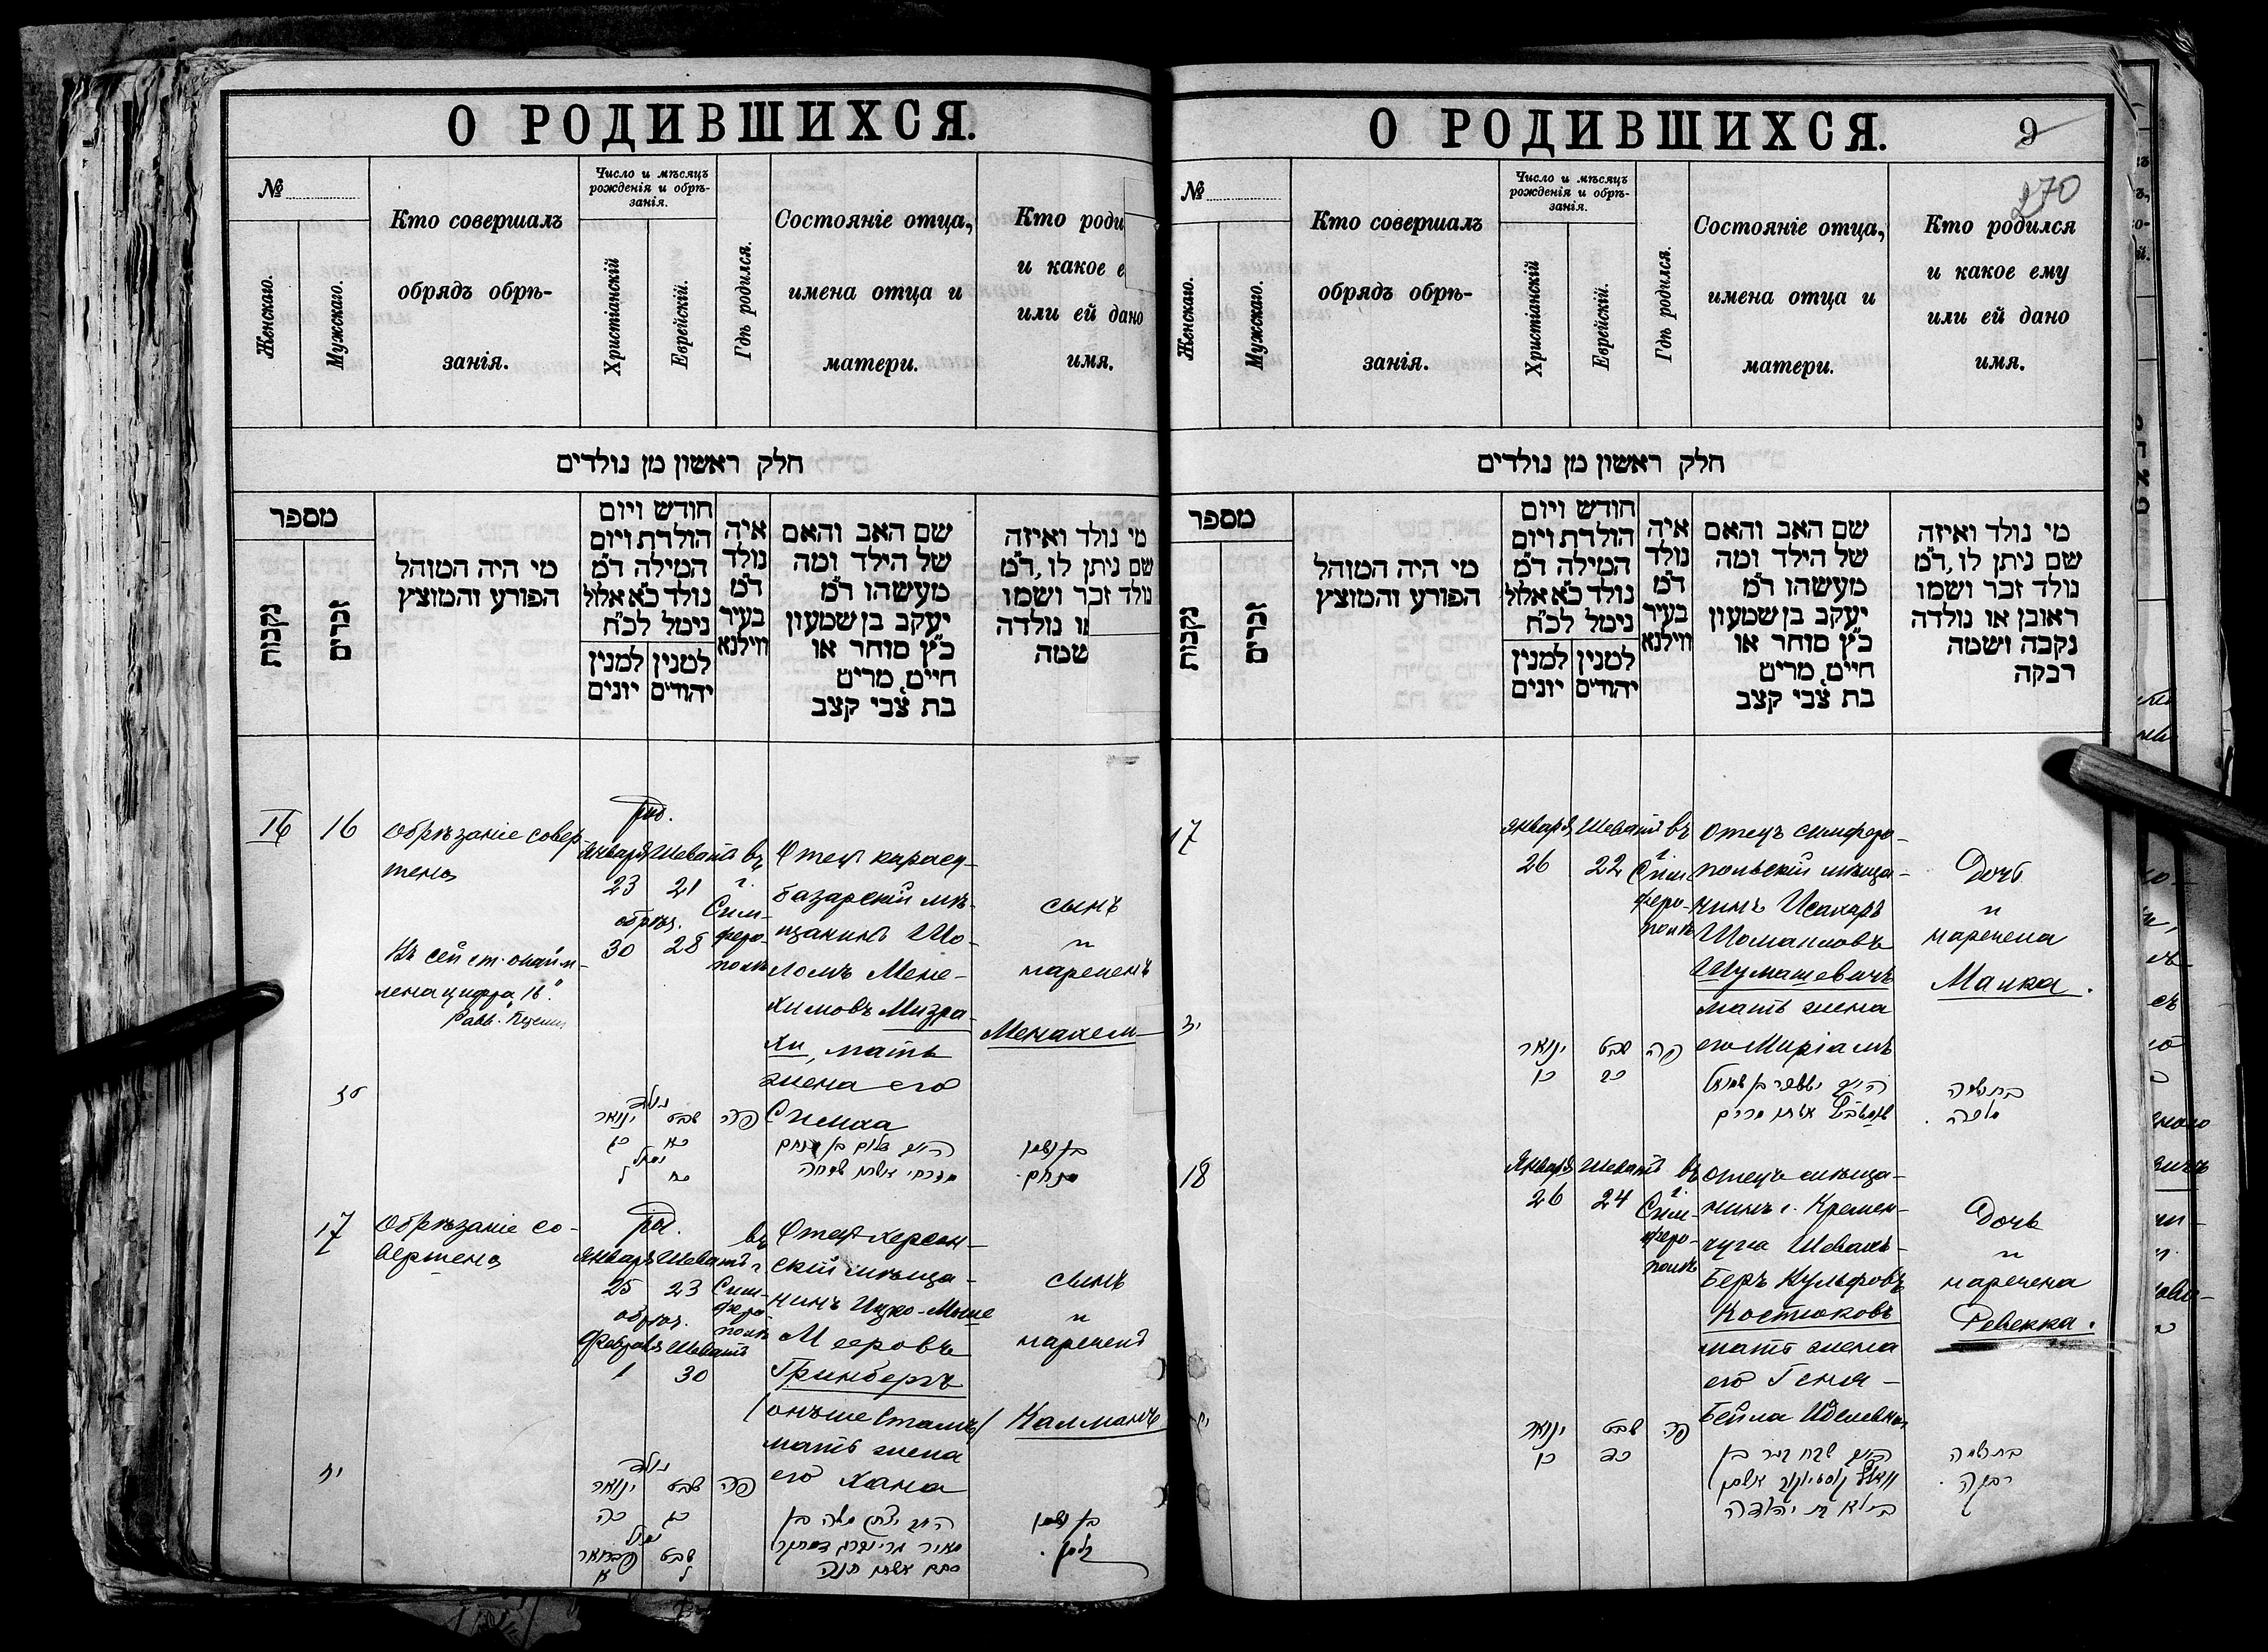 О РОДИВШИХСЯ.
№
Женскаго.
Мужскаго.
Кто совершалъ
обрядъ обрѣ-
занія.
Число и мѣсяцъ
рожденія и обрѣ-
занія.
Христіанскій
Еврейскій.
Гдѣ родился.
Состояніе отца,
имена отца и
матери.
Кто роди
и какое е
или ей дано
имя.
חלק ראשון מן נולדים
מספר
נקבות
זכרים
מי היה המוהל
הפורע והמוצץ
חודש ויום
הולדת ויום
המילה ד״מ
נולד כ״א אלול
נימל לכ״ח
למנין יהודים
למנין יונים
איה
נולד
ד״מ
בעיר
ווילנא
שם האב והאם
של הילד ומה
מעשהו ד״מ
יעקב בן שמעון
כ״ץ סוחר או
חיים, מרים
בת צבי קצב
מי נולד ואיזה
שם ניתן לו, ד״מ
נולד זכר ושמו
או נולדה
שמה
16
16
Обрѣзаніе совер-
шено
Къ сей ст.
цифра "16".
род.
Января Шеватъ
23 21
обрѣз.
30 28
въ
г.
Сим-
феро-
полѣ
Отецъ карасу-
базарскій мѣ-
щанинъ Шо-
ломъ Мене-
химовъ Мизра-
хи, мать
жена его
Симха
сынъ
и
нареченъ
Менахем
נולד
ינואר שבט
כג כא
נימול
ל כח
פה
17
Обрѣзаніе со-
вершено
род.
Январь Шеватъ
25 23
обрѣз.
Февраль Шеватъ
1 30
въ
г.
Сим-
феро-
полѣ
Отецъ херсон-
скій мѣща-
нинъ Ицко-Моше
Мееровъ
Гринбергъ
мать жена
его Хана
сынъ
и
нареченъ
Калманъ
נולד
ינואר שבט
כה כג
נימול
פברואר שבט
א ל
פה
О РОДИВШИХСЯ.
9
270
№
Женскаго.
Мужскаго.
Кто совершалъ
обрядъ обрѣ-
занія.
Число и мѣсяцъ
рожденія и обрѣ-
занія.
Христіанскій
Еврейскій.
Гдѣ родился.
Состояніе отца,
имена отца и
матери.
Кто родился
и какое ему
или ей дано
имя.
חלק ראשון מן נולדים
מספר
נקבות
זכרים
מי היה המוהל
הפורע והמוצץ
חודש ויום
הולדת ויום
המילה ד״מ
נולד כ״א אלול
נימל לכ״ח
למנין יהודים
למנין יונים
איה
נולד
ד״מ
בעיר
ווילנא
שם האב והאם
של הילד ומה
מעשהו ד״מ
יעקב בן שמעון
כ״ץ סוחר או
חיים, מרים
בת צבי קצב
מי נולד ואיזה
שם ניתן לו, ד״מ
נולד זכר ושמו
ראובן או נולדה
נקבה ושמה
רבקה
17
Января Шеватъ
26 22
въ
г.
Сим-
феро-
полѣ
Отецъ симферо-
польскій мѣща-
нинъ Исахаръ
Шомаиловъ
Шумашевичъ
мать жена
его Миріамъ
Дочь
и
наречена
Малка.
ינואר שבט
פה
18
Январь Шеватъ
26 24
въ
г.
Сим-
феро-
полѣ
Отецъ мѣща-
нинъ г. Кремен-
чуга Шевахъ-
Беръ Вульфовъ
Костюковъ
мать жена
его Геня-
Бейла Иделевна
Дочь
и
наречена
Ревекка.
ינואר שבט
כו כד
פה
רבקה.